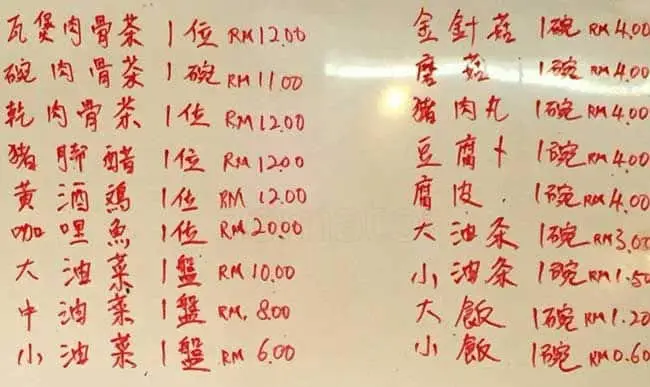 瓦煲肉骨茶 1位 RM12.00
碗肉骨茶 1碗 RM11.00
乾肉骨茶 1位 RM12.00
豬腳醋 1位 RM12.00
黃酒鷄 1位 RM 12.00
咖哩魚 1位 RM20.00
大油菜 1盤 RM10.00
中油菜 1盤 RM.8.00
小油菜 1盤 RM 6.00
金針菇 1碗 RM4.00
磨菇 1碗 RM4.00
豬肉丸 1碗 RM4.00
豆腐卜 1碗 RM4.00
腐皮 1碗 RM4.00
大油条 1碗 RM3.00
小油条 1碗 RM1.50
大飯 1碗 RM1.20
小飯 1碗 RM0.60